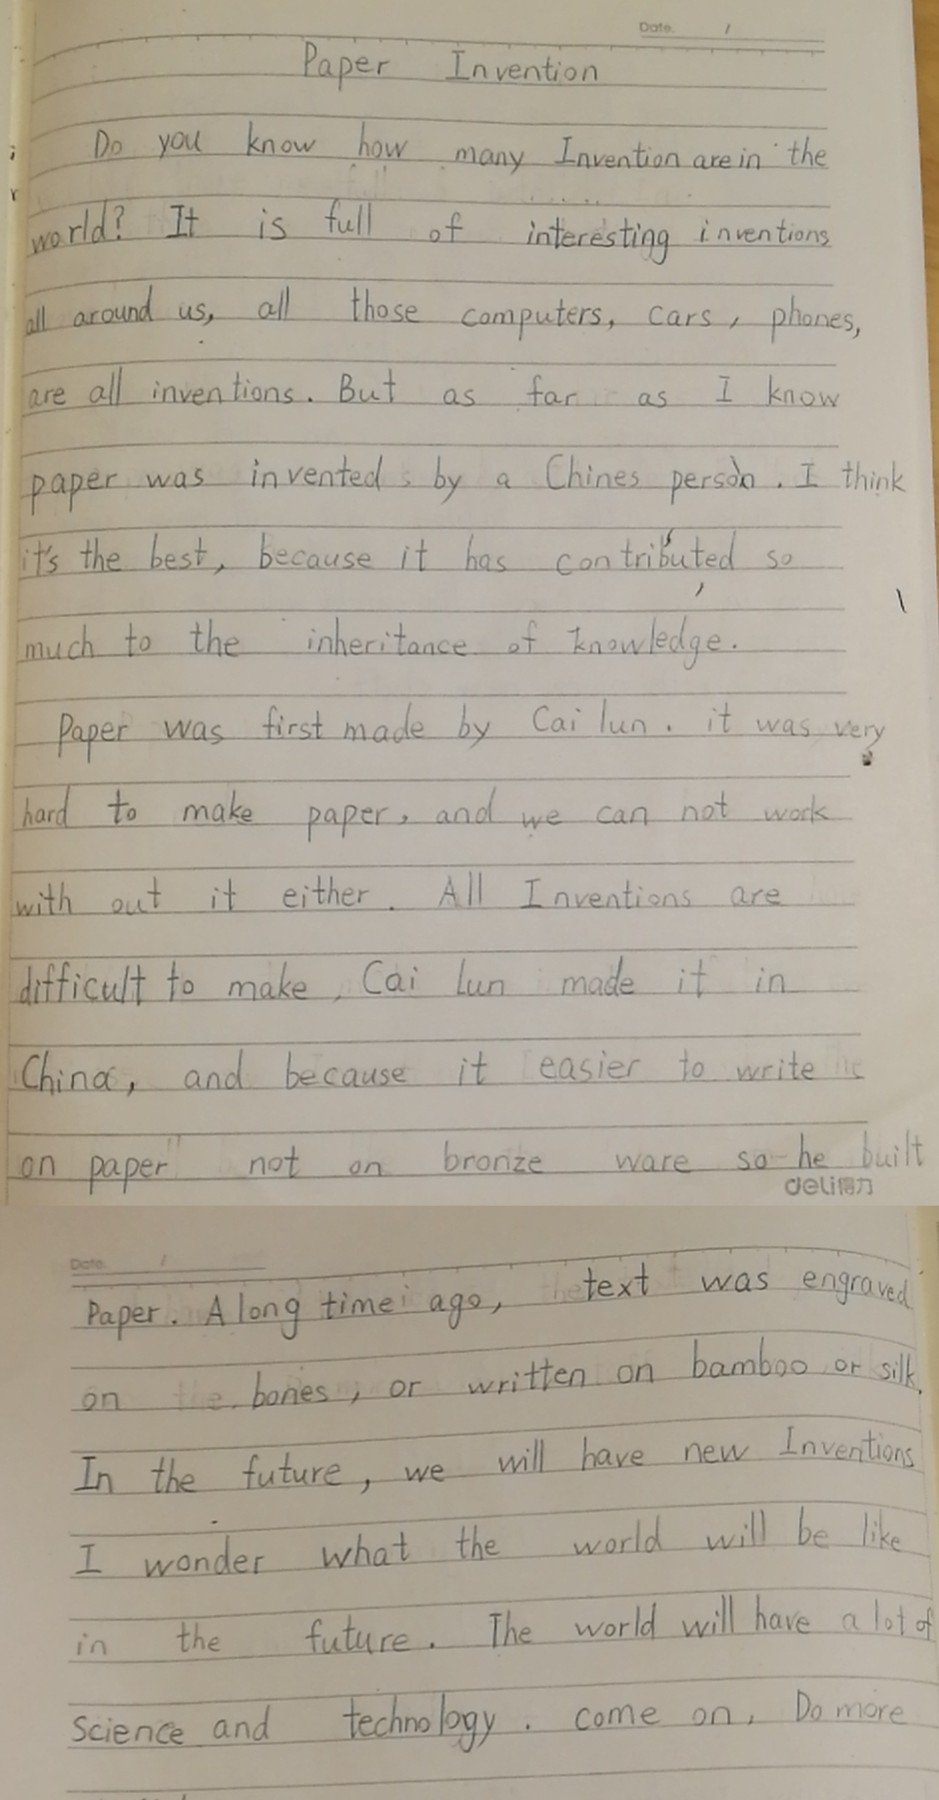 Date. /
Paper Invention
Do you know how many Invention are in the
world? It is full of interesting inventions
all around us, all those computers, cars, phones,
are all inventions. But as far as I know
paper was invented by a Chines person. I think
it's the best, because it has contributed so
much to the inheritance of knowledge.
Paper was first made by Cai lun. it was very
hard to make paper, and we can not work
with out it either. All Inventions are
difficult to make, Cai lun made it in
China, and because it easier to write
on paper not on bronze ware so he built
deli得力
Date. /
Paper. A long time ago, text was engraved
on bones, or written on bamboo or silk.
In the future, we will have new Inventions
I wonder what the world will be like
in the future. The world will have a lot of
Science and technology. come on, Do more